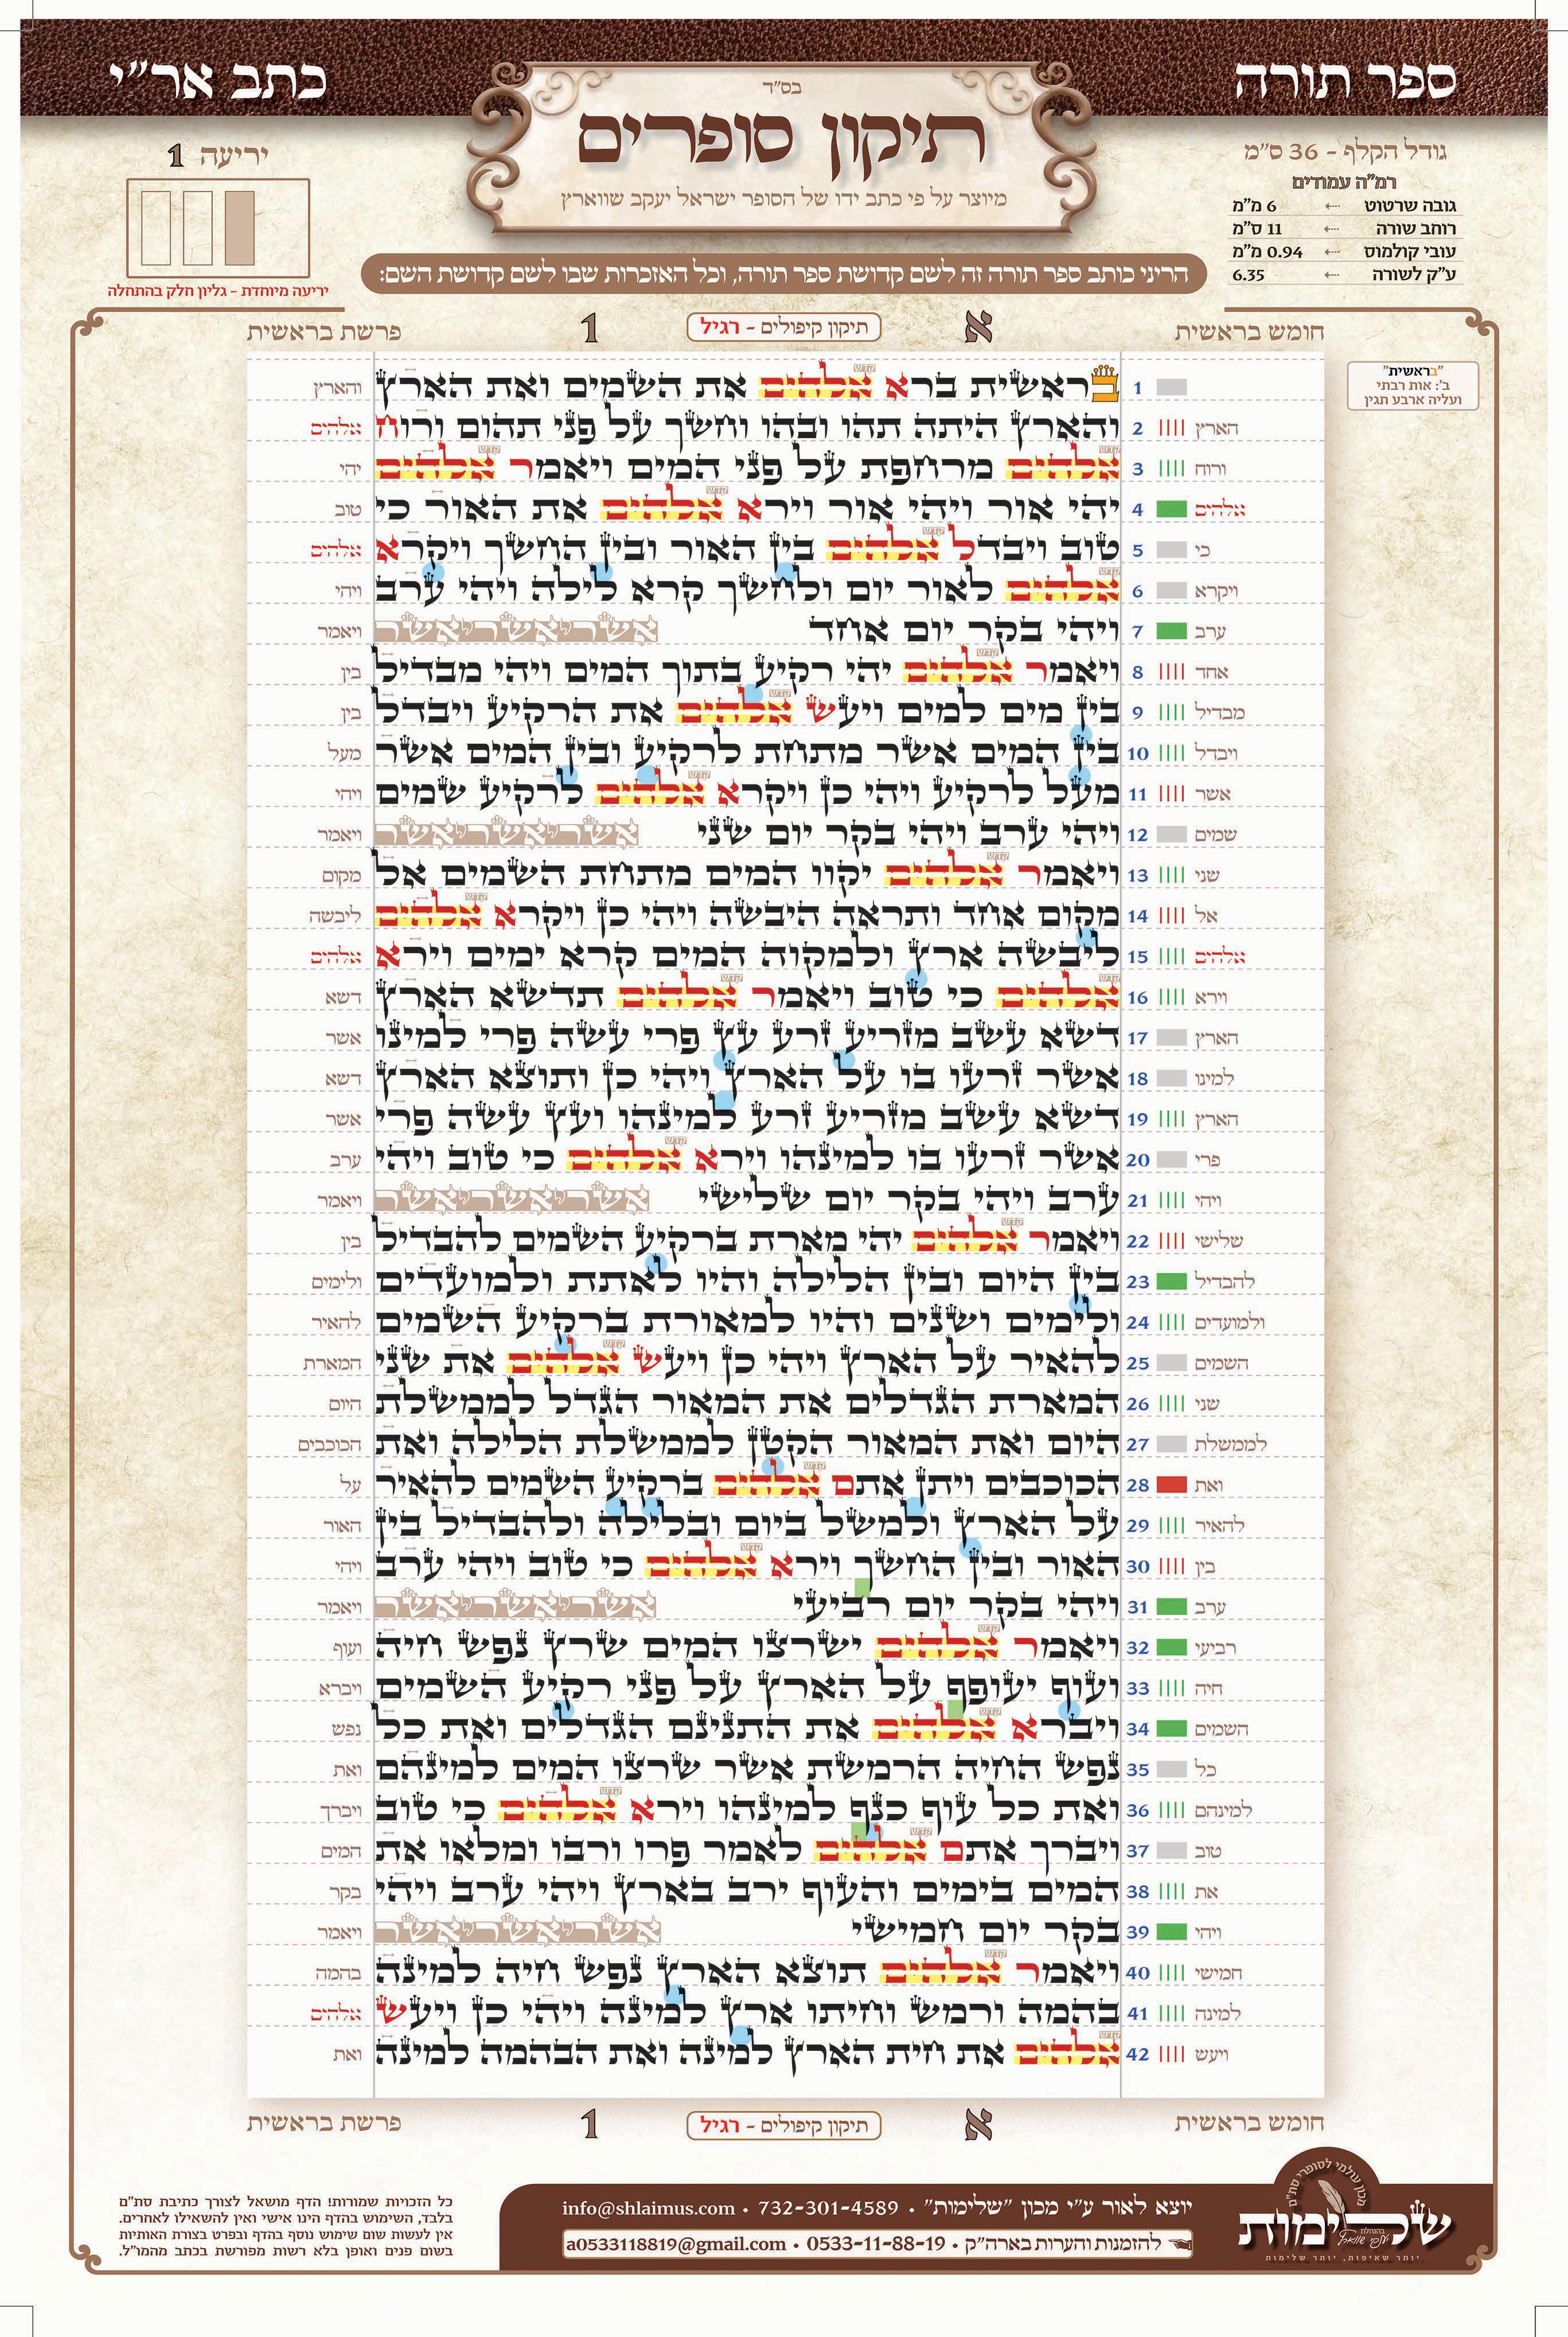 ספר תורה
כתב אר"י
בס"ד
תיקון סופרים
מיוצר על פי כתב ידו של הסופר ישראל יעקב שווארץ
גודל הקלף - 36 ס"מ
רמ"ה עמודים
גובה שרטוט 6 מ"מ
רוחב שורה 11 ס"מ
עובי קולמוס 0.94 מ"מ
ע"ק לשורה 6.35
יריעה 1
יריעה מיוחדת - גליון חלק בהתחלה
הריני כותב ספר תורה זה לשם קדושת ספר תורה, וכל האזכרות שבו לשם קדושת השם:
חומש בראשית א תיקון קיפולים - רגיל 1 פרשת בראשית
"בראשית"
ב': אות רבתי
ועליה ארבע תגין
1 בראשית ברא אלהים את השמים ואת הארץ והארץ
הארץ 2 והארץ היתה תהו ובהו וחשך על פני תהום ורוח אלהים
ורוח 3 אלהים מרחפת על פני המים ויאמר אלהים יהי
אלהים 4 יהי אור ויהי אור וירא אלהים את האור כי טוב
כי 5 טוב ויבדל אלהים בין האור ובין החשך ויקרא אלהים
ויקרא 6 אלהים לאור יום ולחשך קרא לילה ויהי ערב ויהי
ערב 7 ויהי בקר יום אחד אשר אשר אשר ויאמר
אחד 8 ויאמר אלהים יהי רקיע בתוך המים ויהי מבדיל בין
מבדיל 9 בין מים למים ויעש אלהים את הרקיע ויבדל בין
ויבדל 10 בין המים אשר מתחת לרקיע ובין המים אשר מעל
אשר 11 מעל לרקיע ויהי כן ויקרא אלהים לרקיע שמים ויהי
שמים 12 ויהי ערב ויהי בקר יום שני אשר אשר אשר ויאמר
שני 13 ויאמר אלהים יקוו המים מתחת השמים אל מקום
אל 14 מקום אחד ותראה היבשה ויהי כן ויקרא אלהים ליבשה
אלהים 15 ליבשה ארץ ולמקוה המים קרא ימים וירא אלהים
וירא 16 אלהים כי טוב ויאמר אלהים תדשא הארץ דשא
הארץ 17 דשא עשב מזריע זרע עץ פרי עשה פרי למינו אשר
למינו 18 אשר זרעו בו על הארץ ויהי כן ותוצא הארץ דשא
הארץ 19 דשא עשב מזריע זרע למינהו ועץ עשה פרי אשר
פרי 20 אשר זרעו בו למינהו וירא אלהים כי טוב ויהי ערב
ויהי 21 ערב ויהי בקר יום שלישי אשר אשר אשר ויאמר
שלישי 22 ויאמר אלהים יהי מארת ברקיע השמים להבדיל בין
להבדיל 23 בין היום ובין הלילה והיו לאתת ולמועדים ולימים
ולמועדים 24 ולימים ושנים והיו למאורת ברקיע השמים להאיר
השמים 25 להאיר על הארץ ויהי כן ויעש אלהים את שני המארת
שני 26 המארת הגדלים את המאור הגדל לממשלת היום
לממשלת 27 היום ואת המאור הקטן לממשלת הלילה ואת הכוכבים
ואת 28 הכוכבים ויתן אתם אלהים ברקיע השמים להאיר על
להאיר 29 על הארץ ולמשל ביום ובלילה ולהבדיל בין האור
בין 30 האור ובין החשך וירא אלהים כי טוב ויהי ערב ויהי
ערב 31 ויהי בקר יום רביעי אשר אשר אשר ויאמר
רביעי 32 ויאמר אלהים ישרצו המים שרץ נפש חיה ועוף
חיה 33 ועוף יעופף על הארץ על פני רקיע השמים ויברא
השמים 34 ויברא אלהים את התנינם הגדלים ואת כל נפש
כל 35 נפש החיה הרמשת אשר שרצו המים למינהם ואת
למינהם 36 ואת כל עוף כנף למינהו וירא אלהים כי טוב ויברך
טוב 37 ויברך אתם אלהים לאמר פרו ורבו ומלאו את המים
את 38 המים בימים והעוף ירב בארץ ויהי ערב ויהי בקר
ויהי 39 בקר יום חמישי אשר אשר אשר ויאמר
חמישי 40 ויאמר אלהים תוצא הארץ נפש חיה למינה בהמה
למינה 41 בהמה ורמש וחיתו ארץ למינה ויהי כן ויעש אלהים
ויעש 42 אלהים את חית הארץ למינה ואת הבהמה למינה ואת
חומש בראשית א תיקון קיפולים - רגיל 1 פרשת בראשית
מכון עולמי לסופרי סת"ם
שלימות
בהנהלת
יותר שאיפות, יותר שלימות
יוצא לאור ע"י מכון "שלימות" • 732-301-4589 • info@shlaimus.com
להזמנות והערות בארה"ק • 0533-11-88-19 • a0533118819@gmail.com
כל הזכויות שמורות! הדף מושאל לצורך כתיבת סת"ם
בלבד, השימוש בהדף הינו אישי ואין להשאילו לאחרים.
אין לעשות שום שימוש נוסף בהדף ובפרט בצורת האותיות
בשום פנים ואופן בלא רשות מפורשת בכתב מהמו"ל.